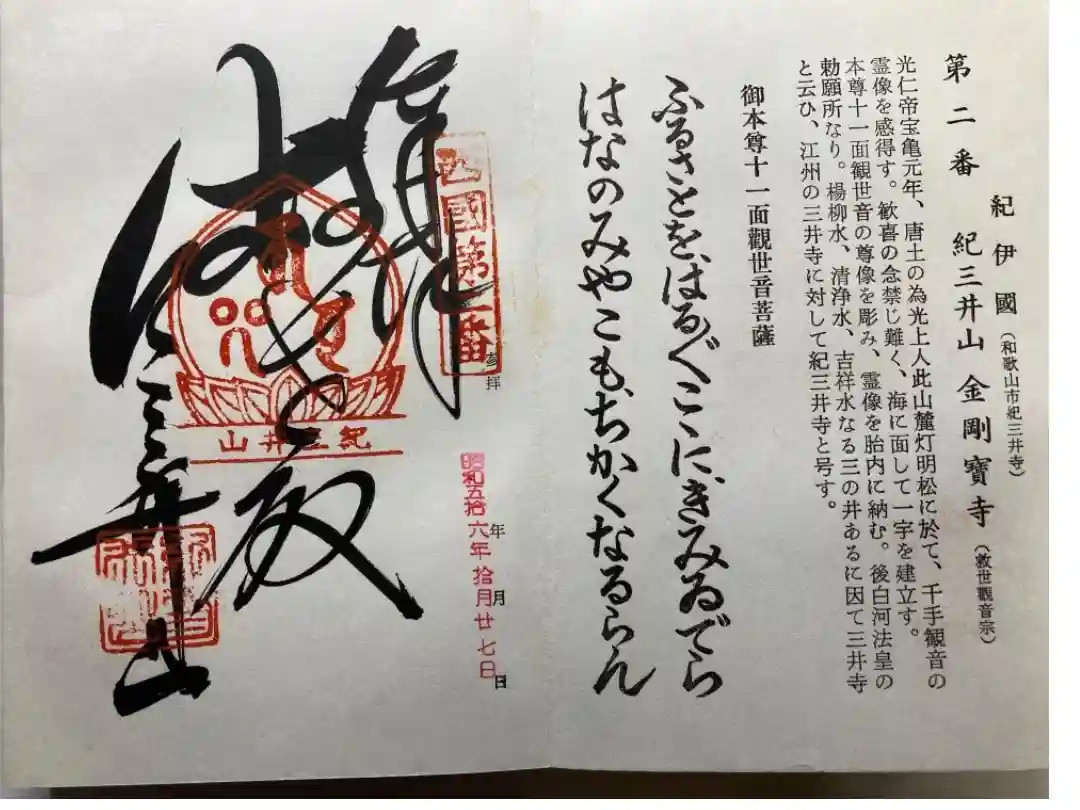 紀伊國（和歌山市紀三井寺）
第二番　紀三井山　金剛寶寺（救世觀音宗）
光仁帝宝亀元年、唐土の為光上人此山麓灯明松に於て、千手観音の
霊像を感得す。歓喜の念禁じ難く、海に面して一宇を建立す。
本尊十一面観世音の尊像を彫み、霊像を胎内に納む。後白河法皇の
勅願所なり。楊柳水、清浄水、吉祥水なる三の井あるに因て三井寺
と云ひ、江州の三井寺に対して紀三井寺と号す。
御本尊十一面觀世音菩薩
ふるさとを、はるぐこゝに、きみゐでら
はなのみやこも、ちかくなるらん
西國第二番
参拝
昭和五拾六年拾月廿七日
年月日
奉拝
救世殿
紀三井山
紀三井山